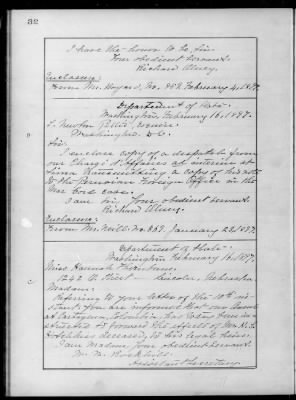 32
I have the honor to be, Sir,
Your obedient servant,
Richard Olney.
Enclosure:
From Mr. No. 852 February 4, 1897.
Department of State.
Washington, February 16, 1897.
S. Newton Pettis, Esquire,
Washington D.C.
Sir:
I enclose copy of a despatch from
our Chargé d'Affaires ad interim at
Lima transmitting a copy of his note
to the Peruvian Foreign Office in the
Mac Cord case.
I am Sir, your obedient servant.
Richard Olney.
Enclosure:
From Mr. Neill No. January 23, 1897.
Department of State.
Washington February 16, 1897.
Miss Hannah
Street Lincoln, Nebraska
Madam:
Referring to your letter of the 10th in-
stant, you are informed that our Consul
at Cartagena, Colombia, has been in-
structed to forward the effects of Mr.
deceased, to his legal heirs.
I am Madam, your obedient servant.
W. W. Rockhill.
Assistant Secretary.